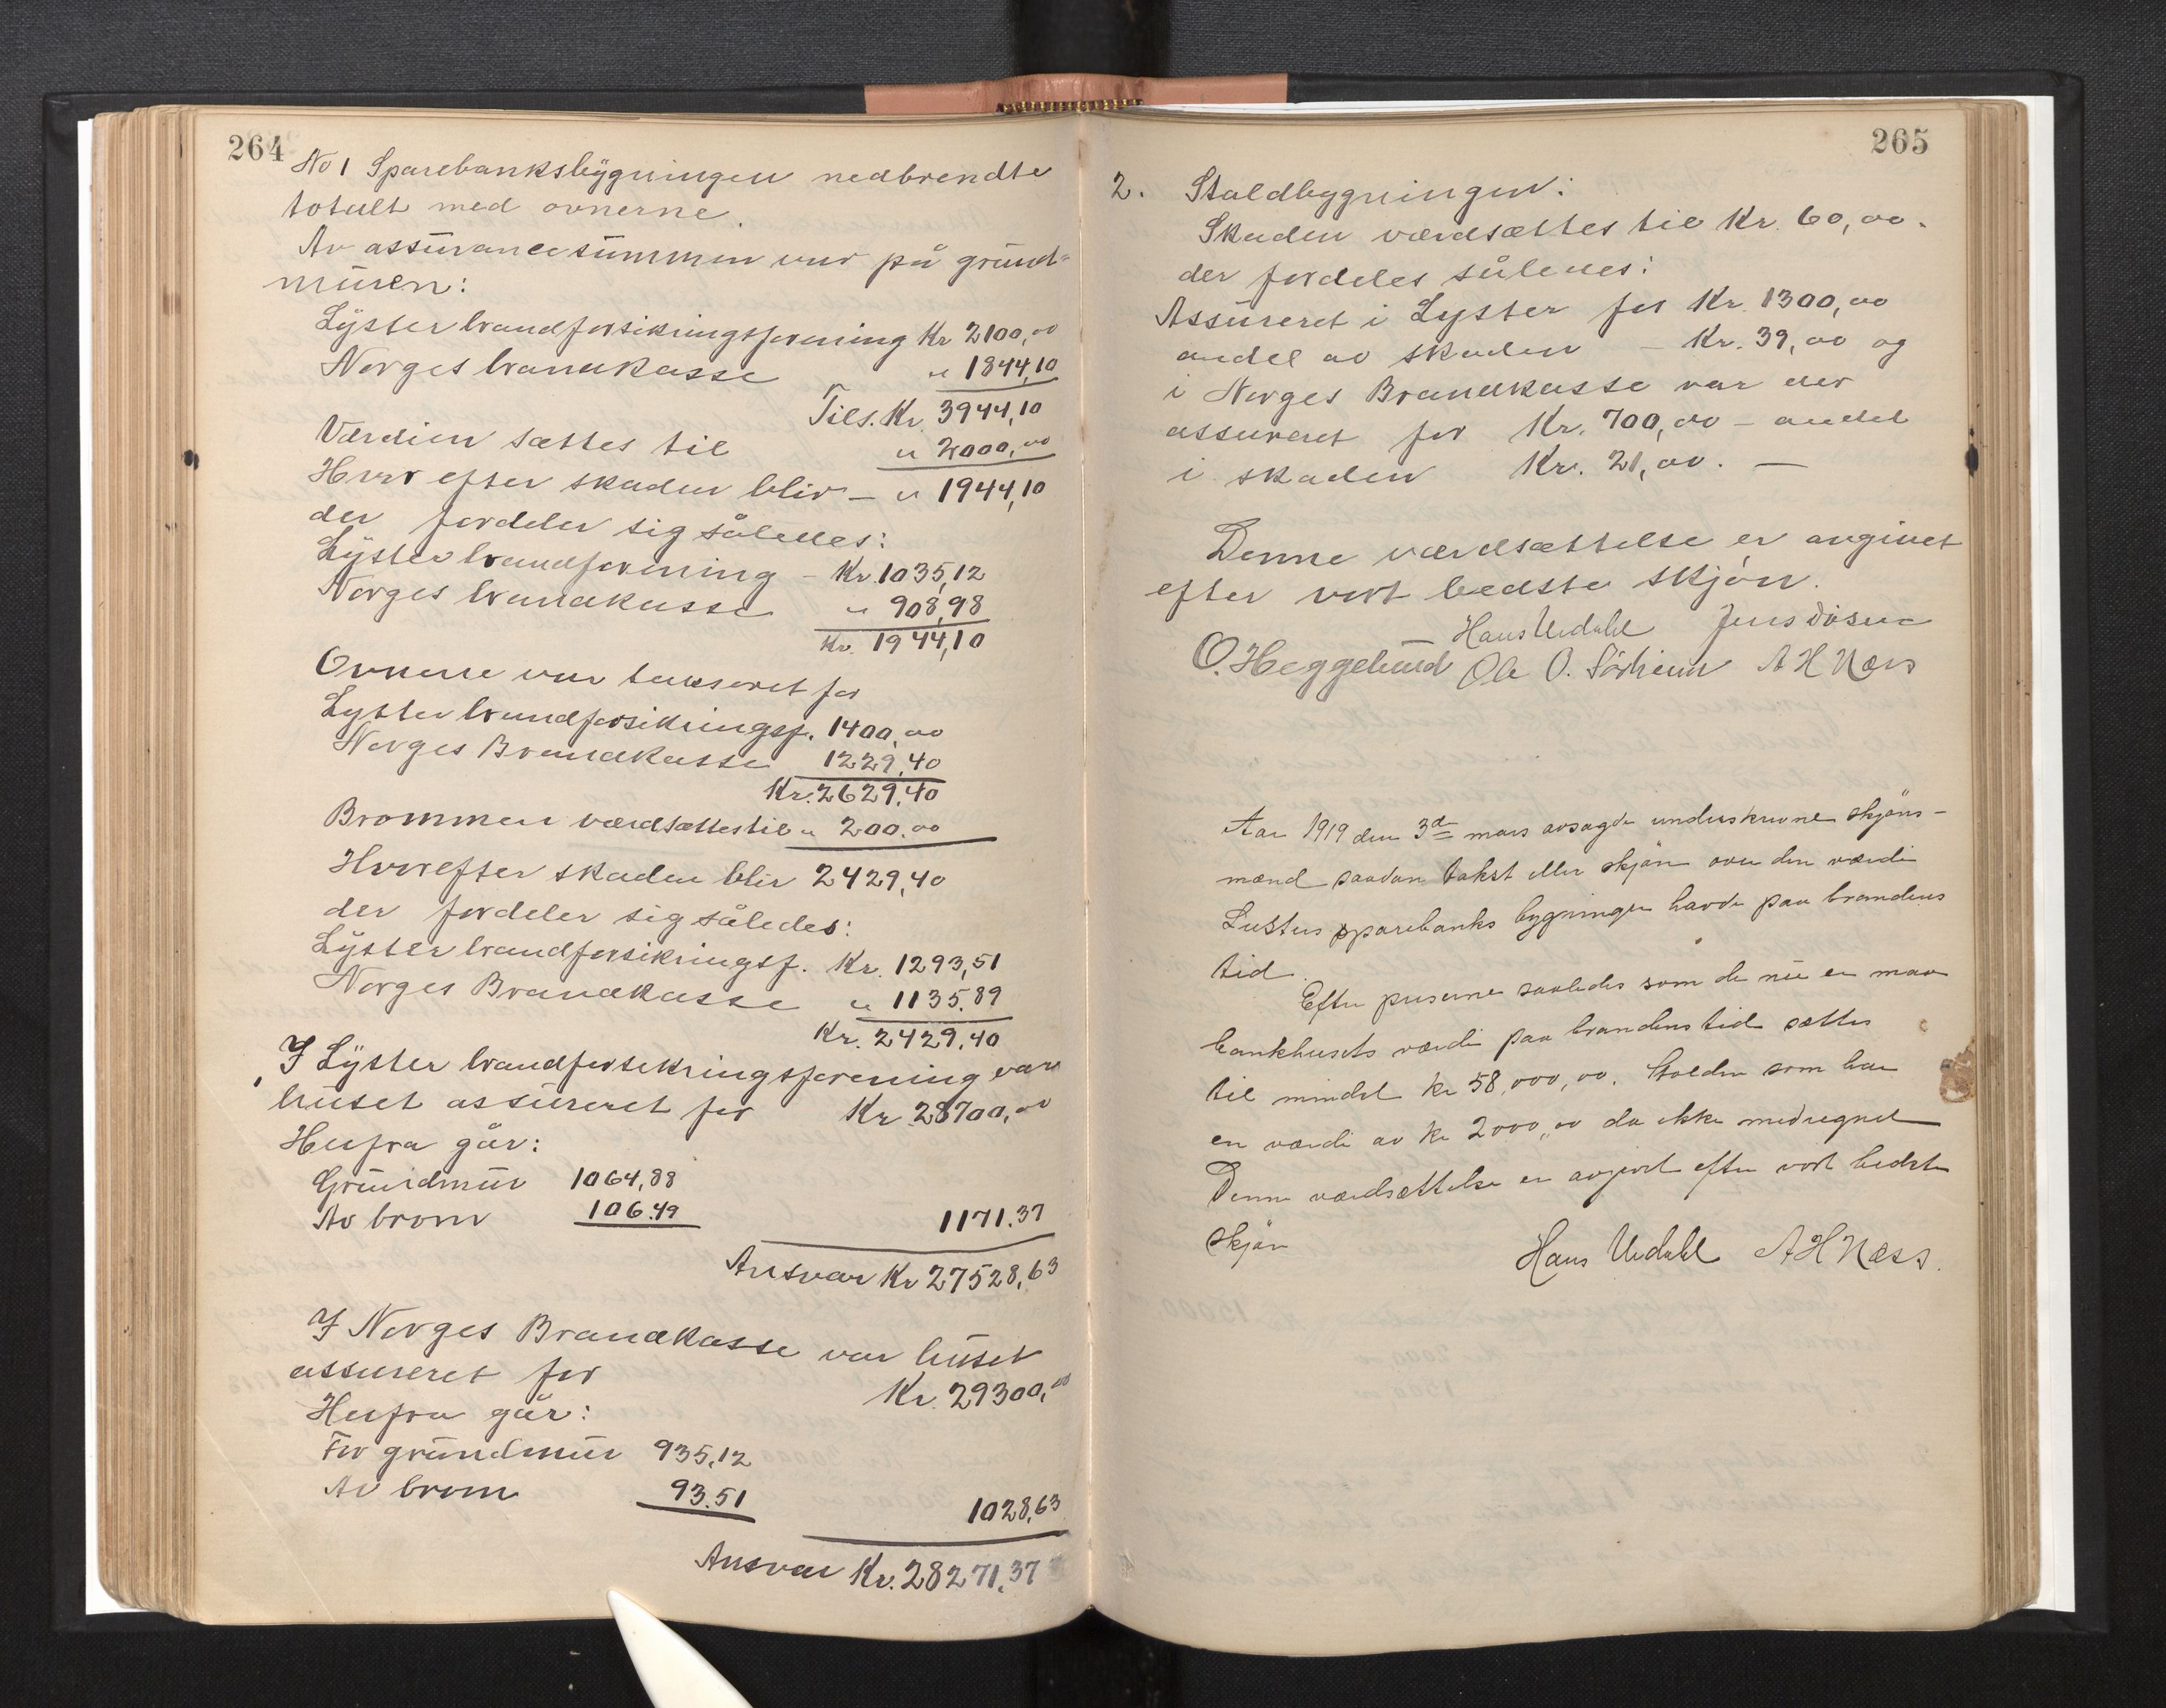 264
No 1 Sparebanksbygningen nedbrendte
totalt med ovnerne.
Av assurancesummen var på grund-
muren:
Lyster brandforsikringsforening Kr 2100,00
Norges brandkasse " 1844,10
Tils. Kr. 3944,10
Værdien sættes til " 2000,00
Hvor efter skaden blir - " 1944,10
der fordeler sig således:
Lyster brandforening - Kr. 1035,12
Norges brandkasse " 908,98
Kr. 1944,10
Ovnene var taxseret for
Lyster brandforsikringsf. 1400,00
Norges Brandkasse 1229,40
Kr. 2629,40
Brommen værdsættes til " 200,00
Hvorefter skaden blir 2429,40
der fordeler sig således:
Lyster brandforsikringsf. Kr. 1293,51
Norges Brandkasse " 1135.89
Kr. 2429.40
I Lyster brandforsekringsforening var
huset assureret for Kr 28700,00
Herfra går:
Grundmur 1064,88
Av brom 106.49 1171.37
Ansvar Kr 27528,63
I Norges Brandkasse var huset
assureret for Kr. 29300,00
Herfra går:
For grundmur 935,12
Av brom 93.51 1028,63
Ansvar Kr. 28271,37
265
2. Staldbygningen:
Skaden værdsættes til Kr. 60,00.
der fordeles sålenes:
Assureret i Lyster for Kr. 1300,00
andel av skaden - Kr. 39,00 og
i Norges Brandkasse var der
assureret for Kr. 700,00 - andel
i skaden Kr. 21,00. -
Denne værdsættelse er avgivet
efter vort bedste skjøn.
Hans Undahl Jens
O. Heggelund Ole O. Sørheim A H Næss
Aar 1919 den 3de mars avsagde underskrevne skjøns-
mænd saadan takst eller skjøn over den værdi
Lusters sparebanks bygninger havde paa brandens
tid.
Efter priserne saaledes som de nu er maa
bankhusets værdi paa brandens tid sættes
til mindst kr 58,000,00. Stalden som har
en værdi av kr 2000,00 da ikke medregnet
Denne værdsættelse er avgivet efter vort bedste
skjøn
Hans Undahl A H Næss.